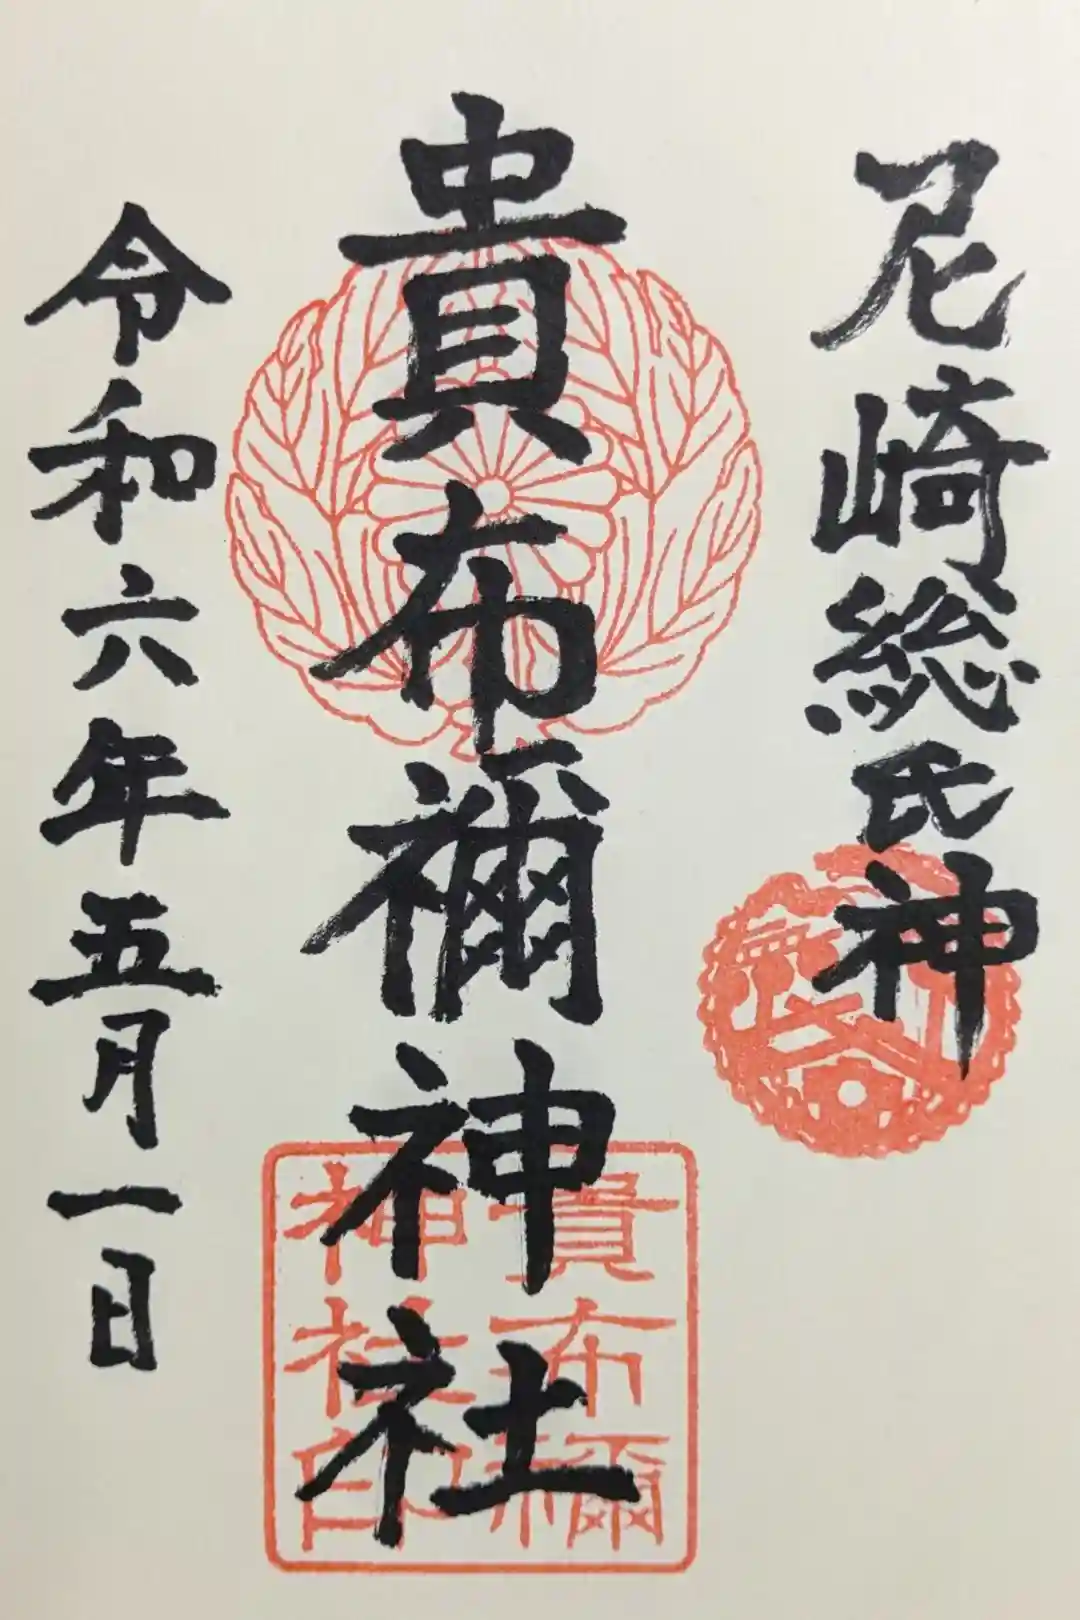 尼崎総氏神
貴布禰神社
貴布禰
神社印
令和六年五月一日